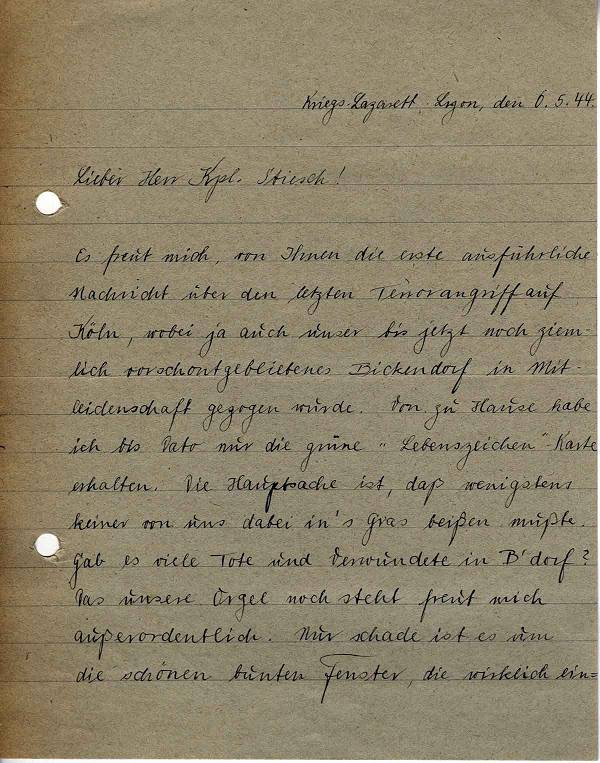 Kriegs-Lazarett Lyon, den 6.5.44.
Lieber Herr Kpl. Stiesch!
Es freut mich, von Ihnen die erste ausführliche
Nachricht über den letzten Terrorangriff auf
Köln, wobei ja auch unser bis jetzt noch ziem-
lich vorschontgebliebenes Bickendorf in Mit-
leidenschaft gezogen wurde. Von zu Hause habe
ich bis Dato nur die grüne „Lebenszeichen" Karte
erhalten. Die Hauptsache ist, daß wenigstens
keiner von uns dabei in's Gras beißen mußte.
Gab es viele Tote und Verwundete in B'dorf?
Das unsere Orgel noch steht freut mich
außerordentlich. Nur schade ist es um
die schönen bunten Fenster, die wirklich ein=